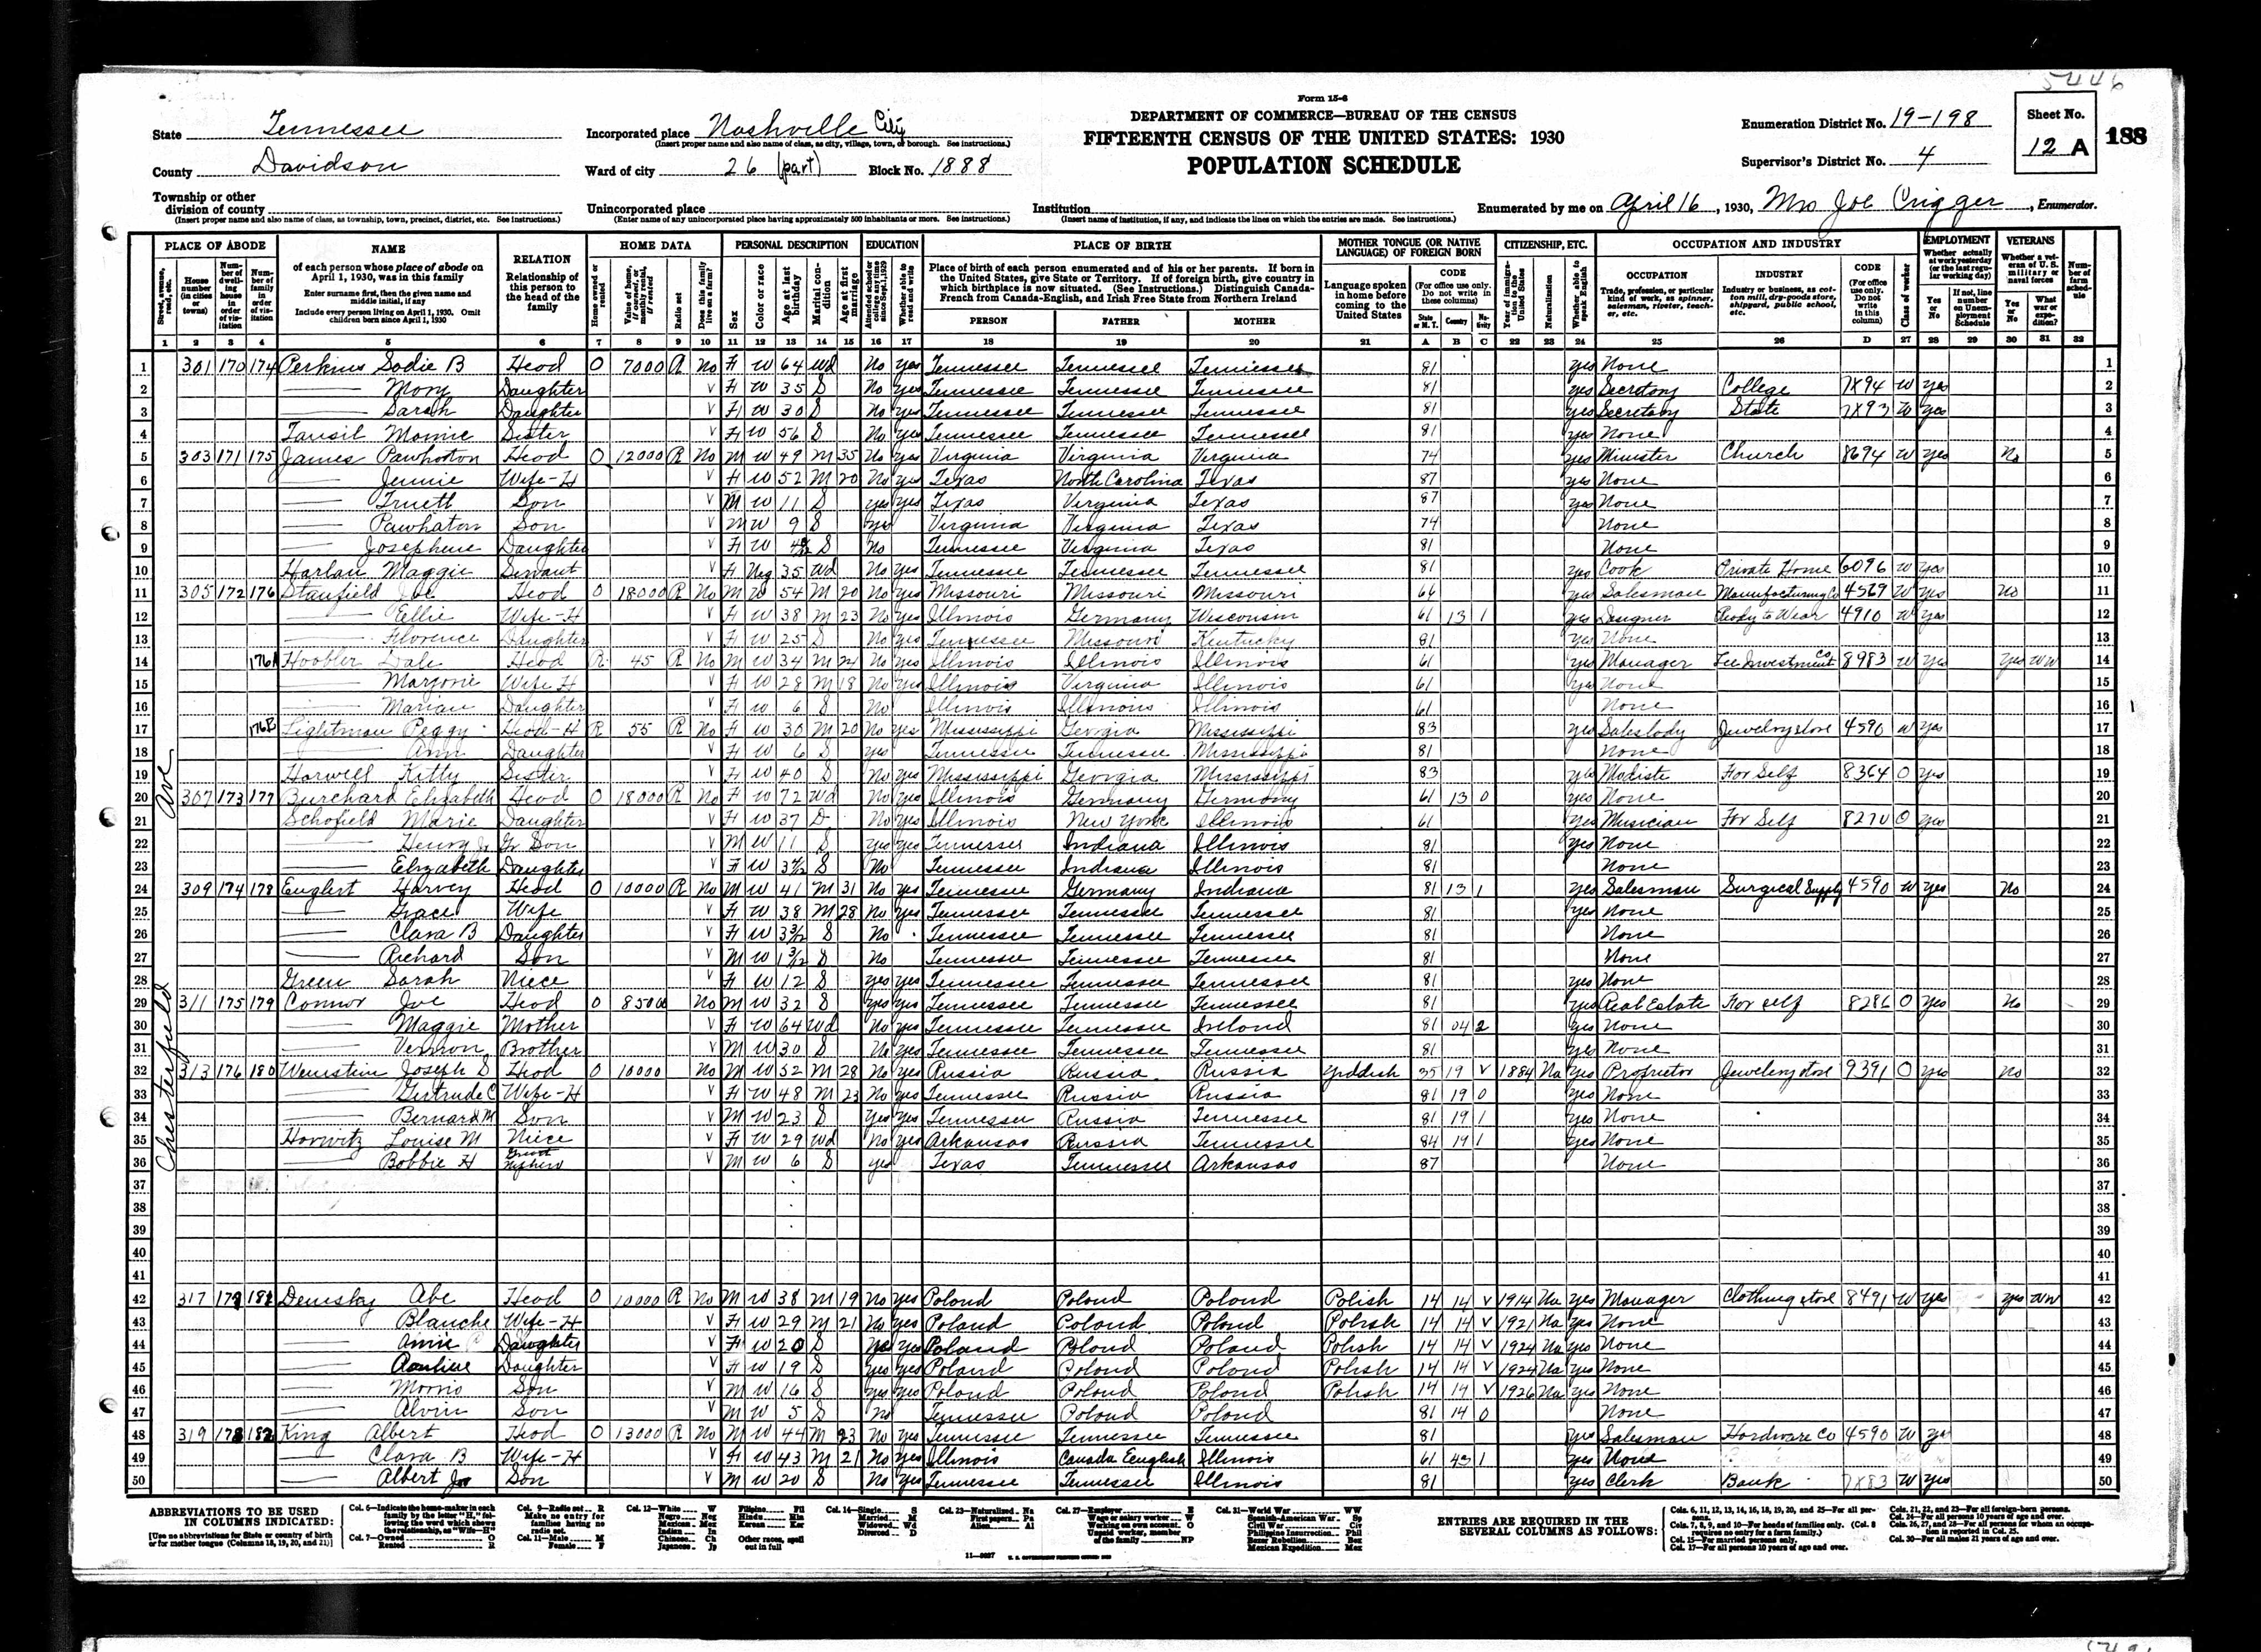 5446
Form 15-6
DEPARTMENT OF COMMERCE—BUREAU OF THE CENSUS
FIFTEENTH CENSUS OF THE UNITED STATES: 1930
POPULATION SCHEDULE
State Tennessee
County Davidson
Township or other division of county
(Insert proper name and also name of class, as township, town, precinct, district, etc. See instructions.)
Incorporated place Nashville City
(Insert proper name and also name of class, as city, village, town, or borough. See instructions.)
Ward of city 26 (part) Block No. 1888
Unincorporated place
(Enter name of any unincorporated place having approximately 500 inhabitants or more. See instructions.)
Institution
(Insert name of institution, if any, and indicate the lines on which the entries are made. See instructions.)
Enumeration District No. 19-198
Supervisor's District No. 4
Sheet No. 12 A
188
Enumerated by me on April 16, 1930, Mrs Joe Crigger, Enumerator.
PLACE OF ABODE NAME RELATION HOME DATA PERSONAL DESCRIPTION EDUCATION PLACE OF BIRTH MOTHER TONGUE (OR NATIVE LANGUAGE) OF FOREIGN BORN CITIZENSHIP, ETC. OCCUPATION AND INDUSTRY EMPLOYMENT VETERANS
Chesterfield Ave
1 301 170 174 Perkins Sadie B Head O 7000 R No F W 64 Wd No yes Tennessee Tennessee Tennessee 81 yes None 1
2 Mary Daughter V F W 35 S No yes Tennessee Tennessee Tennessee 81 yes Secretary College 7X94 W yes 2
3 Sarah Daughter V F W 30 S No yes Tennessee Tennessee Tennessee 81 yes Secretary State 7X93 W yes 3
4 Tansil Mamie Sister V F W 56 S No yes Tennessee Tennessee Tennessee 81 yes None 4
5 303 171 175 James Pawhatan Head O 12000 R No M W 49 M 35 No yes Virginia Virginia Virginia 74 yes Minister Church 8694 W yes No 5
6 Jennie Wife-H V F W 52 M 20 No yes Texas North Carolina Texas 87 yes None 6
7 Truett Son V M W 11 S yes yes Texas Virginia Texas 87 yes None 7
8 Pawhatan Son V M W 9 S yes Virginia Virginia Texas 74 None 8
9 Josephine Daughter V F W S No Tennessee Virginia Texas 81 None 9
10 Harlan Maggie Servant V F Neg 35 Wd No yes Tennessee Tennessee Tennessee 81 yes Cook Private Home 6096 W yes 10
11 305 172 176 Stanfield Joe Head O 18000 R No M W 54 M 20 No yes Missouri Missouri Missouri 66 yes Salesman Manufacturing Co 4569 W yes No 11
12 Ellie Wife-H V F W 38 M 23 No yes Illinois Germany Wisconsin 61 13 1 yes Designer Ready to Wear 4910 W yes 12
13 Florence Daughter V F W 25 S No yes Tennessee Missouri Kentucky 81 yes None 13
14 176A Hoobler Dale Head R 45 R No M W 34 M 24 No yes Illinois Illinois Illinois 61 yes Manager Investment Co 8983 W yes yes WW 14
15 Marjorie Wife H V F W 28 M 18 No yes Illinois Virginia Illinois 61 yes None 15
16 Marian Daughter V F W 6 S No Illinois Illinois Illinois 61 None 16
17 176B Lightman Peggy Head-H R 55 R No F W 30 M 20 No yes Mississippi Georgia Mississippi 83 yes Saleslady Jewelry store 4590 W yes 17
18 Ann Daughter V F W 6 S yes Tennessee Tennessee Mississippi 81 None 18
19 Harwell Kitty Sister V F W 40 S No yes Mississippi Georgia Mississippi 83 yes Modiste For Self 8364 O yes 19
20 307 173 177 Burchard Elizabeth Head O 18000 R No F W 72 Wd No yes Illinois Germany Germany 61 13 0 yes None 20
21 Schofield Marie Daughter V F W 37 D No yes Illinois New York Illinois 61 yes Musician For Self 8270 O yes 21
22 Henry Jr Gr Son V M W 11 S yes yes Tennessee Indiana Illinois 81 yes None 22
23 Elizabeth Daughter V F W S No Tennessee Indiana Illinois 81 None 23
24 309 174 178 Englert Harvey Head O 10000 R No M W 41 M 31 No yes Tennessee Germany Indiana 81 13 1 yes Salesman Surgical Supply 4590 W yes No 24
25 Grace Wife V F W 38 M 28 No yes Tennessee Tennessee Tennessee 81 yes None 25
26 Clara B Daughter V F W 3 3/12 S No Tennessee Tennessee Tennessee 81 None 26
27 Richard Son V M W 1 3/12 S No Tennessee Tennessee Tennessee 81 None 27
28 Green Sarah Niece V F W 12 S yes yes Tennessee Tennessee Tennessee 81 yes None 28
29 311 175 179 Connor Joe Head O 8500 No M W 32 S yes yes Tennessee Tennessee Tennessee 81 yes Real Estate For self 8286 O yes No 29
30 Maggie Mother V F W 64 Wd No yes Tennessee Tennessee Ireland 81 04 2 yes None 30
31 Vernon Brother V M W 30 S No yes Tennessee Tennessee Tennessee 81 yes None 31
32 313 176 180 Weinstein Joseph D Head O 10000 No M W 52 M 28 No yes Russia Russia Russia Yiddish 35 19 V 1884 Na yes Proprietor Jewelery store 9391 O yes No 32
33 Gertrude C Wife-H V F W 48 M 23 No yes Tennessee Russia Russia 81 19 0 yes None 33
34 Bernard M Son V M W 23 S yes yes Tennessee Russia Tennessee 81 19 1 yes None 34
35 Horwitz Louise M Niece V F W 29 Wd No yes Arkansas Russia Tennessee 84 19 1 yes None 35
36 Bobbie H Great Nephew V M W 6 S yes Texas Tennessee Arkansas 87 None 36
37 37
38 38
39 39
40 40
41 41
42 317 Demsky Abe Head O 10000 R No M W 38 M 19 No yes Poland Poland Poland Polish 14 14 V 1914 Na yes Manager Clothing store 8491 W yes yes WW 42
43 Blanche Wife-H V F W 29 M 21 No yes Poland Poland Poland Polish 14 14 V 1921 Na yes None 43
44 Annie Daughter V F W 20 S No yes Poland Poland Poland Polish 14 14 V 1924 Na yes None 44
45 Pauline Daughter V F W 19 S yes yes Poland Poland Poland Polish 14 14 V 1924 Na yes None 45
46 Morris Son V M W 16 S yes yes Poland Poland Poland Polish 14 14 V 1926 Na yes None 46
47 Alvin Son V M W 5 S No Tennessee Poland Poland 81 14 0 None 47
48 319 King Albert Head O 13000 R No M W 44 M 23 No yes Tennessee Tennessee Tennessee 81 yes Salesman Hardware Co 4590 W yes 48
49 Clara B Wife-H V F W 43 M 21 No yes Illinois Canada English Illinois 61 43 1 yes None 49
50 Albert Jr Son V M W 20 S No yes Tennessee Tennessee Illinois 81 yes Clerk Bank 7X83 W yes 50
ABBREVIATIONS TO BE USED IN COLUMNS INDICATED:
[Use no abbreviations for State or country of birth or for mother tongue (Columns 18, 19, 20, and 21)]
ENTRIES ARE REQUIRED IN THE SEVERAL COLUMNS AS FOLLOWS: